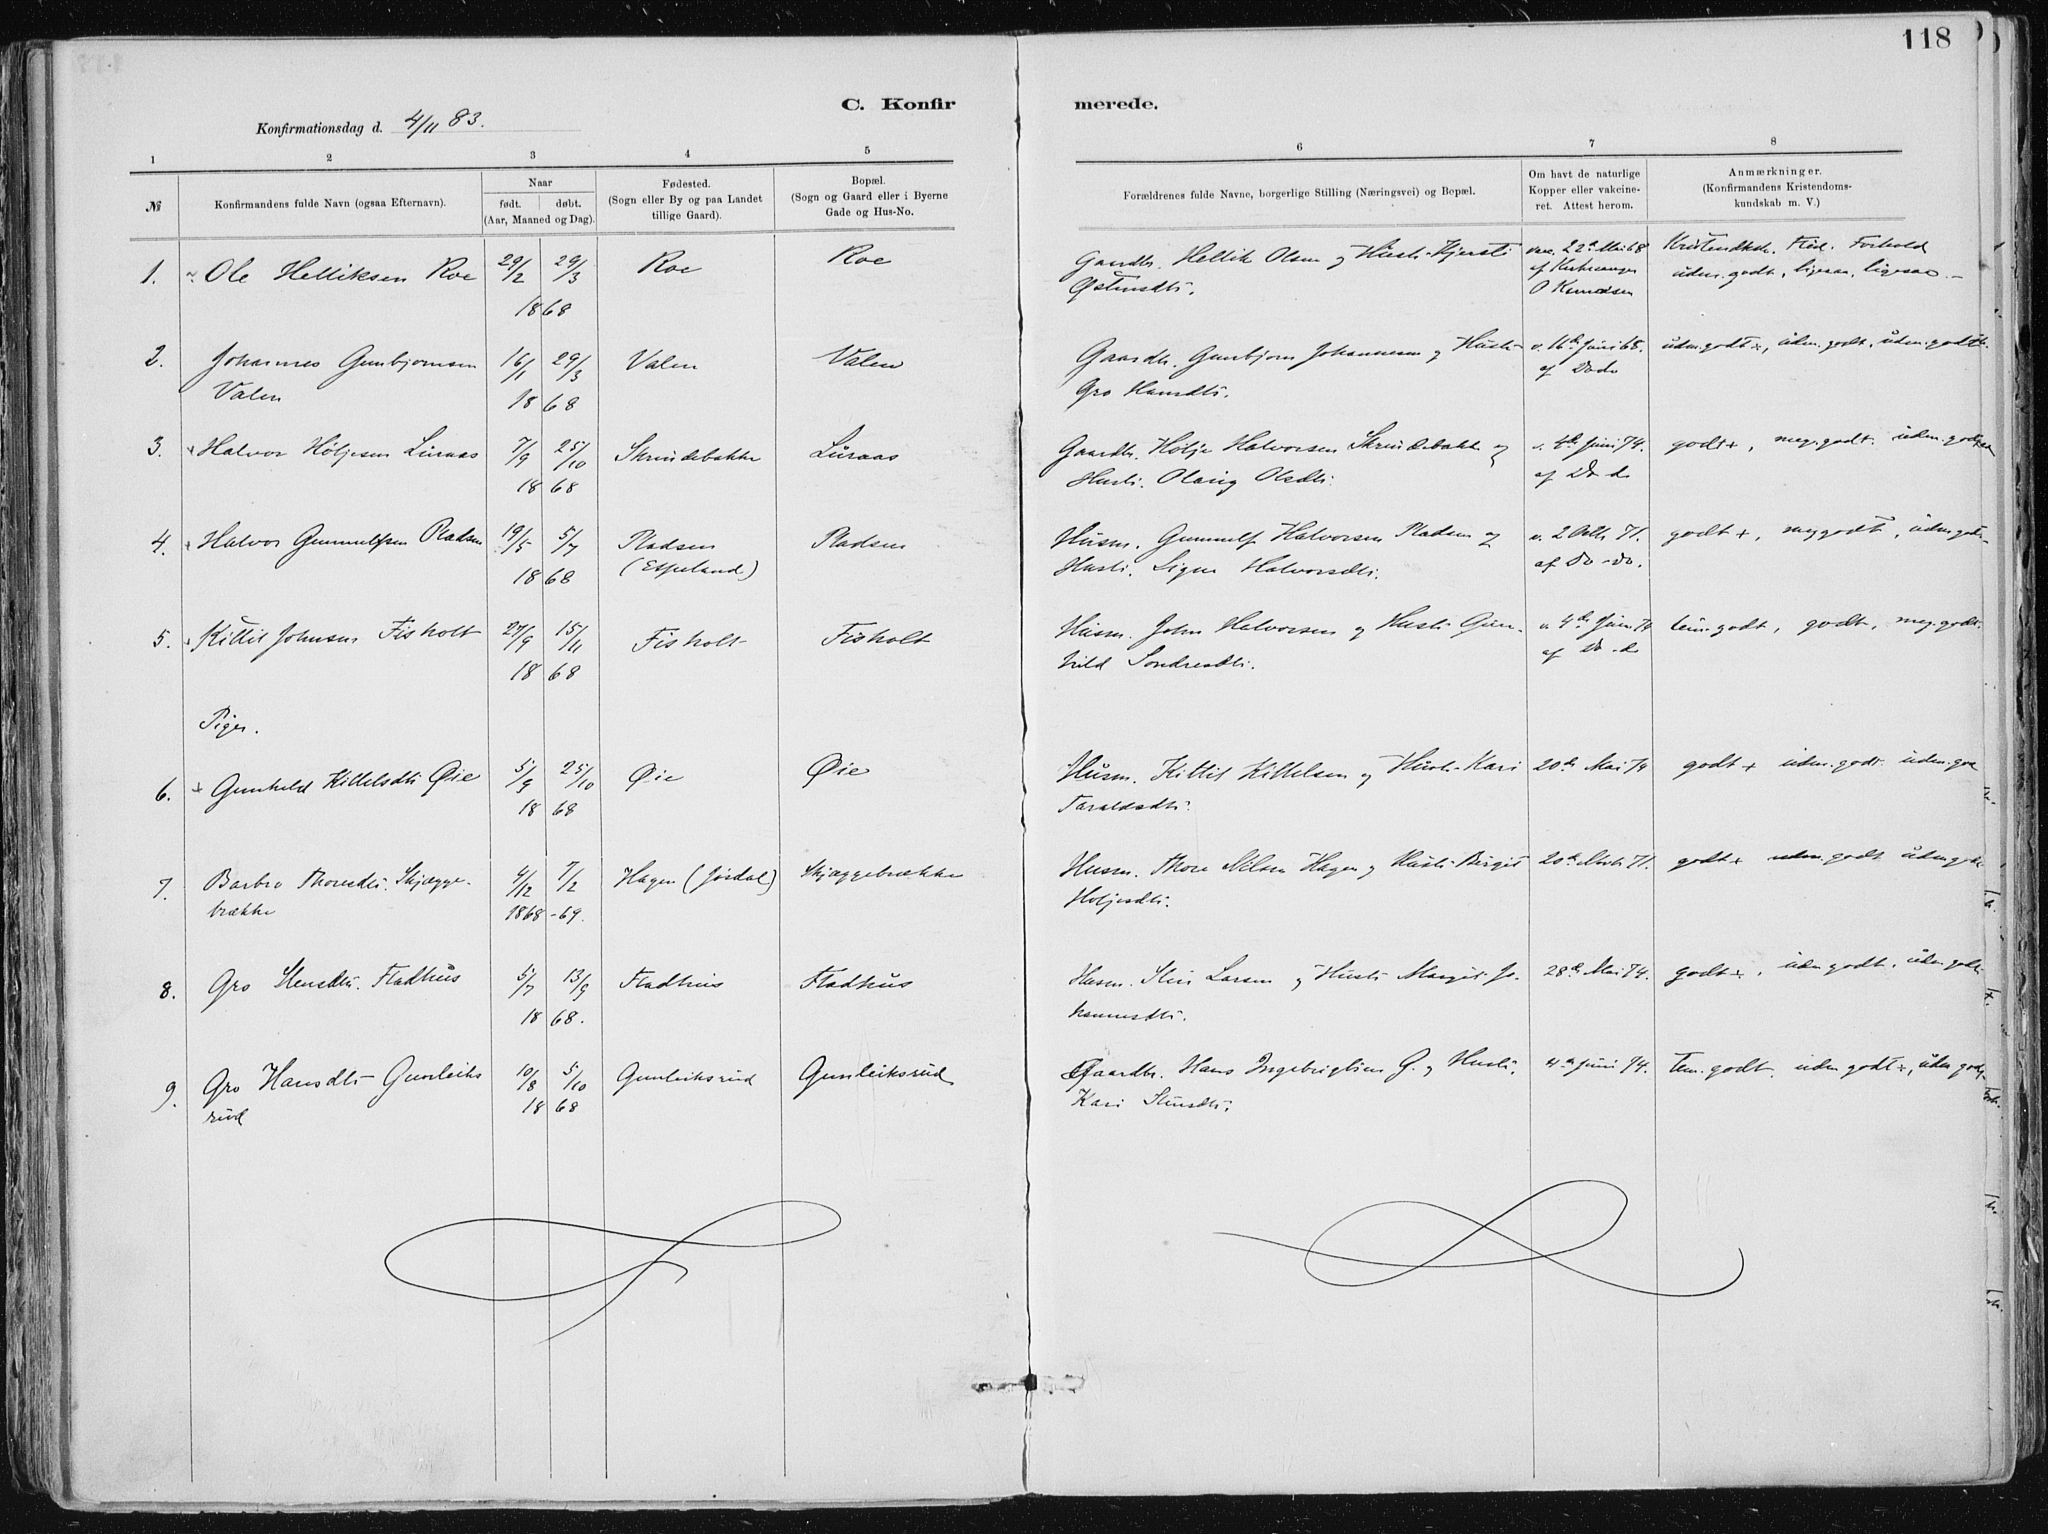 118
C. Konfirmerede.
Konfirmationsdag d. 4/11 83.
1 2 3 4 5 6 7 8
№ Konfirmandens fulde Navn (ogsaa Efternavn).
Naar født. døbt. (Aar, Maaned og Dag).
Fødested. (Sogn eller By og paa Landet tillige Gaard).
Bopæl. (Sogn og Gaard eller i Byerne Gade og Hus-No.
Forældrenes fulde Navne, borgerlige Stilling (Næringsvei) og Bopæl.
Om havt de naturlige Kopper eller vakcineret. Attest herom.
Anmærkninger. (Konfirmandens Kristendomskundskab m. V.)
1. Ole Helliksen Roe 29/2 29/3 Roe Roe Gaardbr. Hellik Olsen og Hustr. Kjersti vac. 22de Mai 68 Kristendksk. Flid. Forhold
1868 Østensdtr. af O Knudsen udm. godt, ligesaa, ligesaa
2. Johannes Gunbjornsen 16/1 29/3 Valen Valen Gaardbr. Gunbjorn Johannesen og Hustr. v. 11te Juni 68. udm. godt+, udm. godt, udm. godt
Valen 1868 Gro Hansdtr. af Dodo
3. Halvor Höljesen Luraas 7/9 25/10 Skrindebakke Luraas Gaardbr. Hölje Halvorsen Skrindebakke og v. 4de Juni 74. godt+, meg. godt. udm. godt
1868 Hustr. Olaug Olsdtr. af Do do
4. Halvor Gunnulfsen Pladsen 19/5 5/7 Pladsen Pladsen Husm. Gunnulf Halvorsen Pladsen og v. 2 Octb. 71. godt+, meg godt, udm. godt
1868 (Espeland) Hustr. Signe Halvorsdtr. af Do-do.
5. Kittil Johnsen Fisholt 27/9 15/11 Fisholt Fisholt Husm. John Halvorsen og Hustr. Gun- v. 4de Juni 74 tem. godt, godt, meg. godt.
1868 hild Sondresdtr. af Do-do
Piger.
6. Gunhild Kittelsdtr Øie 5/9 25/10 Øie Øie Husm. Kittil Kittelsen og Hustr. Kari 20de Mai 74 godt+ udm. godt. udm. go
1868 Taraldsdtr.
7. Barbro Thoresdtr. Skjægge- 4/12 7/2 Hagen (Jørdal) Skjæggebrække Husm. Thore Nilsen Hagen og Hustr. Birgit 71. godt+ udm. godt udm. godt
brække 1868-69. Holjesdtr.
8. Gro Stensdtr. Fladhus 5/7 13/9 Fladhus Fladhus Husm. Sten Larsen og Hustr. Margit Jo- 28de Mai 74. godt+, udm godt, udm godt
1868. hannesdtr.
9. Gro Hansdtr Gunleiks 10/8 5/10 Gunleiksrud Gunleiksrud Gaardbr. Hans Ingebrigtsen G. og Hustr. 4de Juni 74. Tem. godt. udm godt+, udm godt
rud 1868 Kari Stensdtr.